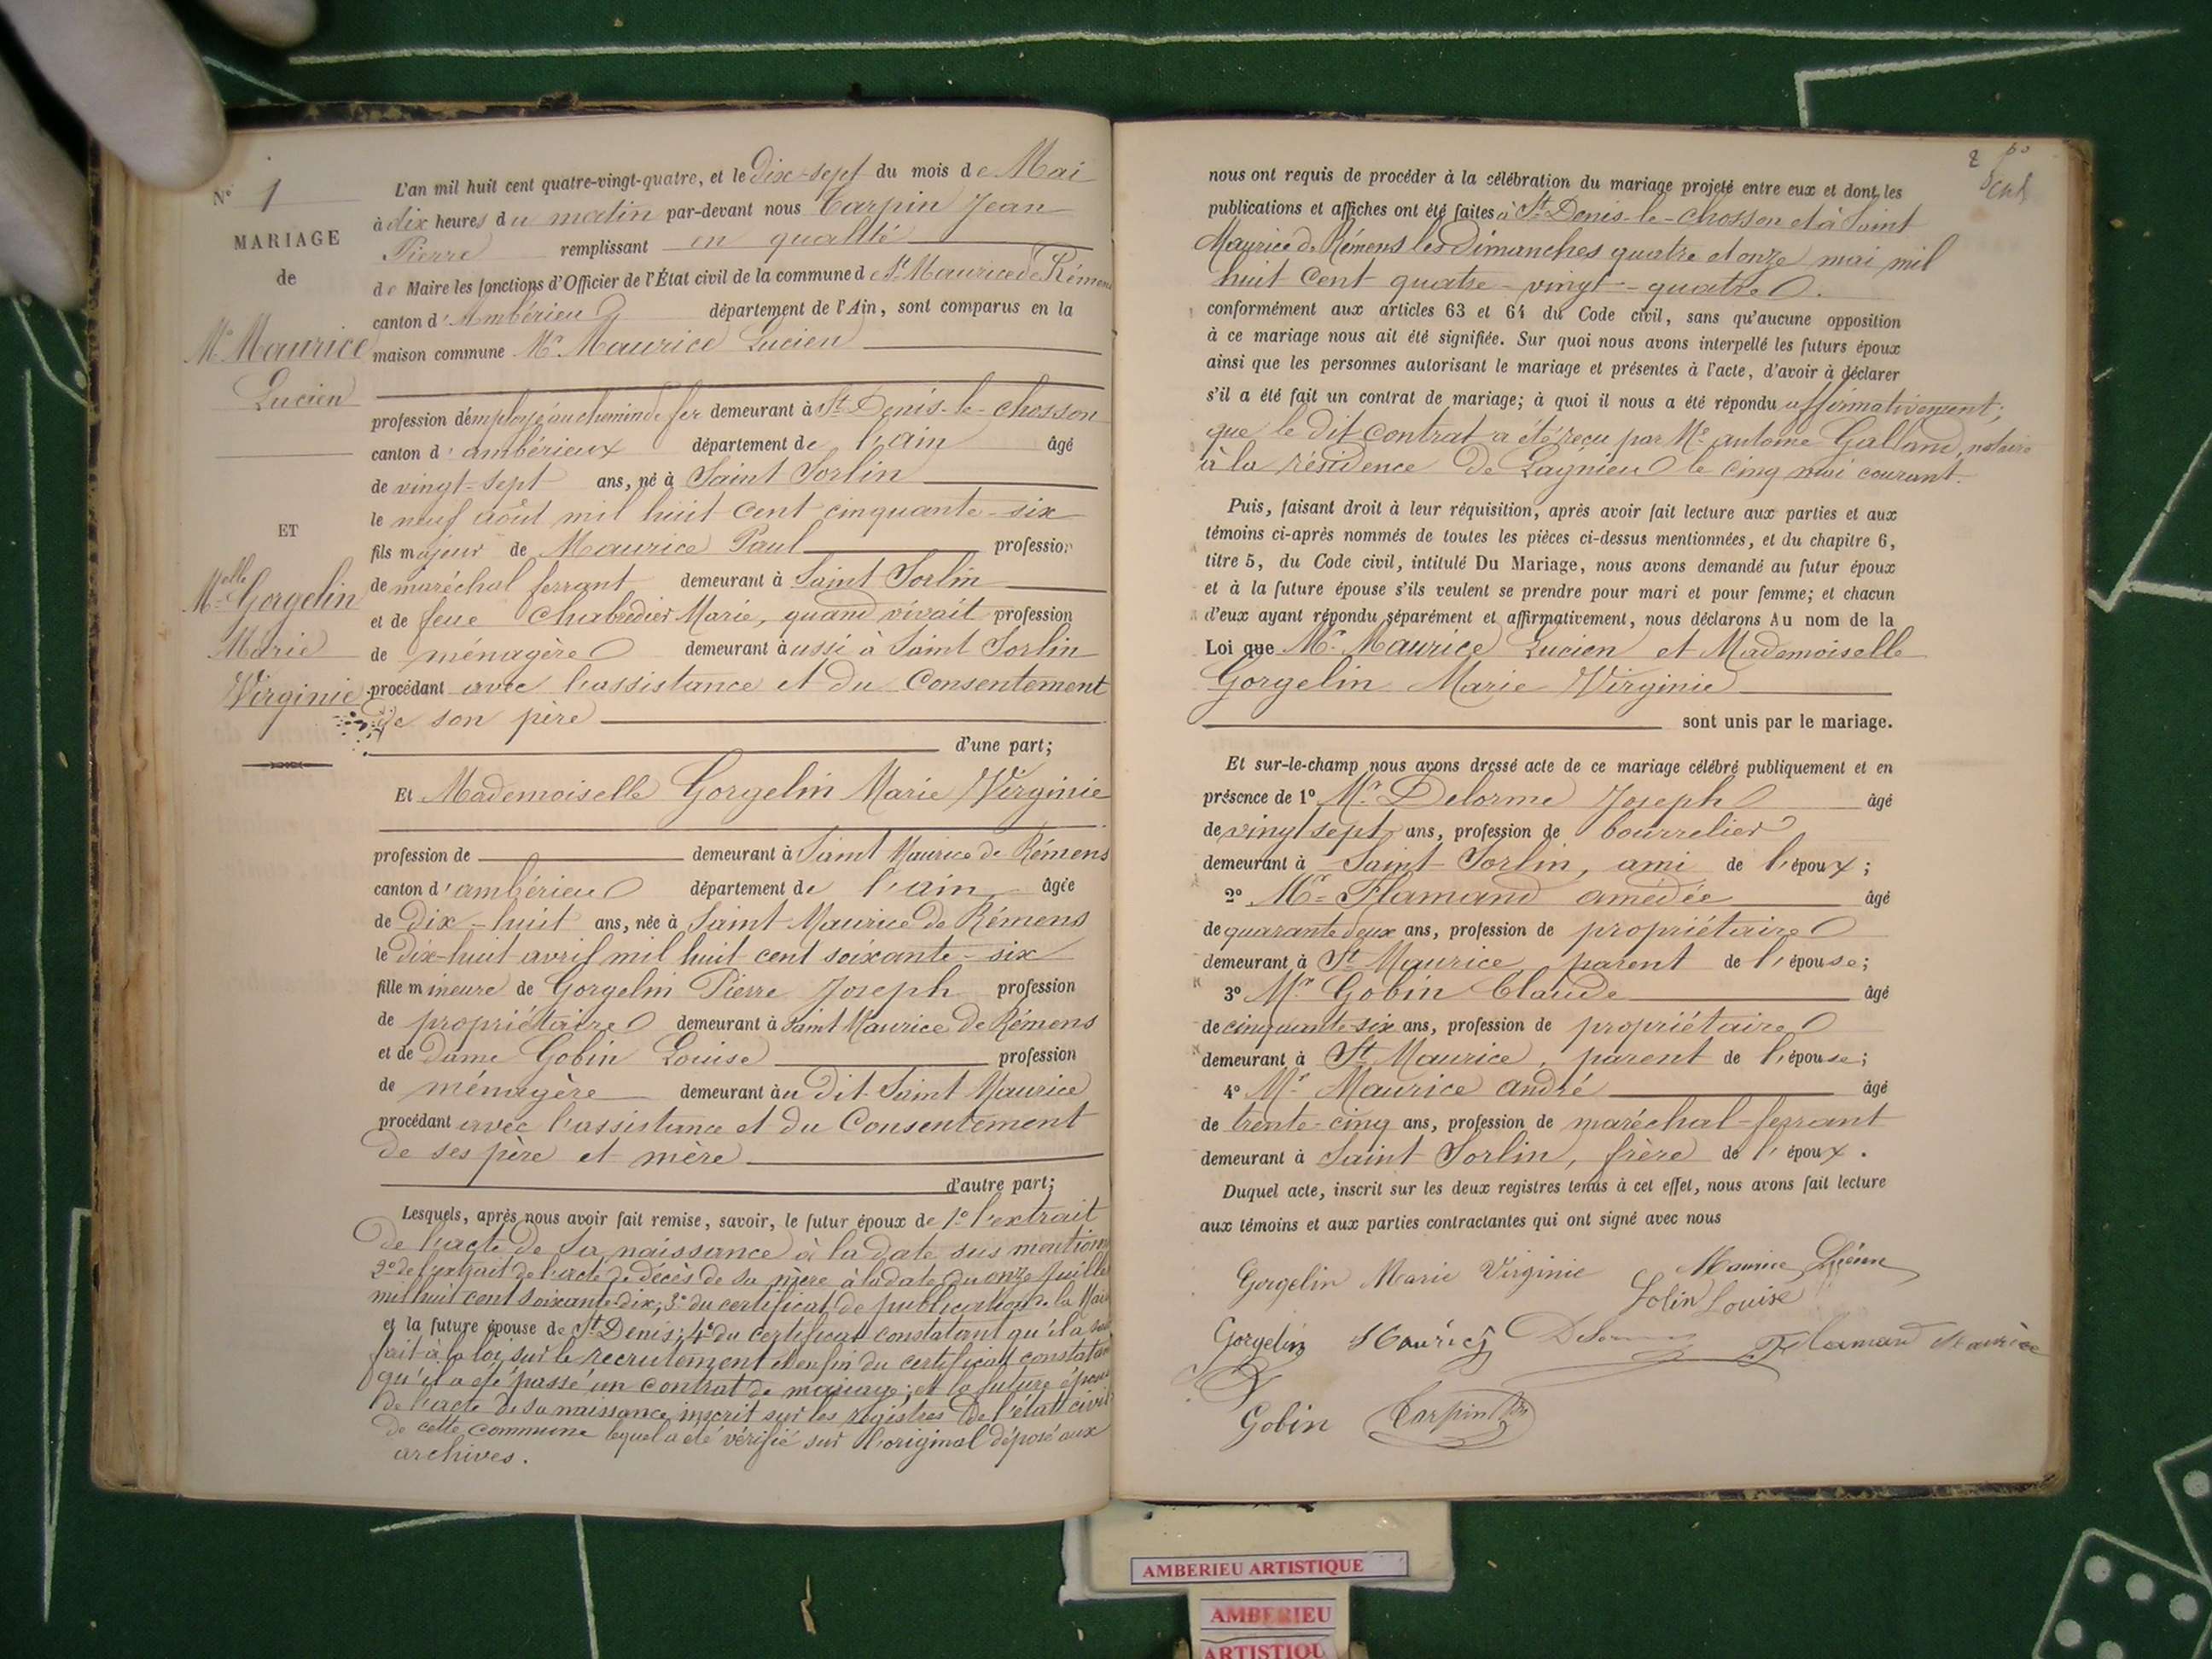 N° 1
MARIAGE
de
Mr Maurice
Lucien
ET
Melle Gorgelin
Marie
Virginie
L'an mil huit cent quatre-vingt-quatre, et le dix-sept du mois de Mai
à dix heures du matin par-devant nous Carpin Jean
Pierre remplissant en qualité
de Maire les fonctions d'Officier de l'État civil de la commune de St Maurice de Rémens
canton d'Ambérieu département de l'Ain, sont comparus en la
maison commune Mr Maurice Lucien
profession d'employé au chemin de fer demeurant à St Denis-le-chosson
canton d'ambérieux département de l'ain âgé
de vingt-sept ans, né à Saint Sorlin
le neuf août mil huit cent cinquante-six
fils majeur de Maurice Paul profession
de maréchal ferrant demeurant à Saint Sorlin
et de feue Chabredier Marie, quand vivait profession
de ménagère demeurant aussi à Saint Sorlin
procédant avec l'assistance et du Consentement
de son père
d'une part;
Et Mademoiselle Gorgelin Marie Virginie
profession de demeurant à Saint Maurice de Rémens
canton d'ambérieu département de l'ain âgée
de dix-huit ans, née à Saint Maurice de Rémens
le dix-huit avril mil huit cent soixante-six
fille mineure de Gorgelin Pierre Joseph profession
de propriétaire demeurant à Saint Maurice de Rémens
et de dame Gobin Louise profession
de ménagère demeurant au dit Saint Maurice
procédant avec l'assistance et du Consentement
de ses père et mère
d'autre part;
Lesquels, après nous avoir fait remise, savoir, le futur époux de 1° l'extrait
de l'acte de sa naissance à la date sus mention
2° de l'extrait de l'acte de décès de sa mère à la date du onze Juille
mil huit cent soixante-dix; 3° du certificat de publication de la Mai
et la future épouse de St Denis; 4° du certificat constatant qu'il a
fait à la loi sur le recrutement et enfin du certificat constatan
qu'il a été passé un contrat de mariage; et la future épous
de l'acte de sa naissance inscrit sur les régistres de l'état civil
de cette commune lequel a été vérifié sur l'original déposé aux
archives.
2
nous ont requis de procéder à la célébration du mariage projeté entre eux et dont les
publications et affiches ont été faites à St Denis-le-chosson et à Saint
Maurice de Rémens les Dimanches quatre et onze mai mil
huit cent quatre-vingt-quatre.
conformément aux articles 63 et 64 du Code civil, sans qu'aucune opposition
à ce mariage nous ait été signifiée. Sur quoi nous avons interpellé les futurs époux
ainsi que les personnes autorisant le mariage et présentes à l'acte, d'avoir à déclarer
s'il a été fait un contrat de mariage; à quoi il nous a été répondu affirmativement;
que le dit contrat a été reçu par Me antoine Galland, notaire
à la résidence de Lagnieu le cinq mai courant.
Puis, faisant droit à leur réquisition, après avoir fait lecture aux parties et aux
témoins ci-après nommés de toutes les pièces ci-dessus mentionnées, et du chapitre 6,
titre 5, du Code civil, intitulé Du Mariage, nous avons demandé au futur époux
et à la future épouse s'ils veulent se prendre pour mari et pour femme; et chacun
d'eux ayant répondu séparément et affirmativement, nous déclarons Au nom de la
Loi que Mr Maurice Lucien et Mademoiselle
Gorgelin Marie Virginie
sont unis par le mariage.
Et sur-le-champ nous avons dressé acte de ce mariage célébré publiquement et en
présence de 1° Mr Delorme Joseph âgé
de vingt sept ans, profession de bourrelier
demeurant à Saint-Sorlin, ami de l'époux;
2° Mr Flamand amédée âgé
de quarante deux ans, profession de propriétaire
demeurant à St Maurice, parent de l'épouse;
3° Mr Gobin Claude âgé
de cinquante-six ans, profession de propriétaire
demeurant à St Maurice, parent de l'épouse;
4° Mr Maurice andré âgé
de trente-cinq ans, profession de maréchal-ferrant
demeurant à Saint Sorlin, frère de l'époux.
Duquel acte, inscrit sur les deux registres tenus à cet effet, nous avons fait lecture
aux témoins et aux parties contractantes qui ont signé avec nous
Gorgelin Marie Virginie Maurice Lucien
Gobin Louise
Gorgelin Maurice Flamand Maurice
Gobin Carpin
AMBERIEU ARTISTIQUE
AMBERIEU
ARTISTIQU